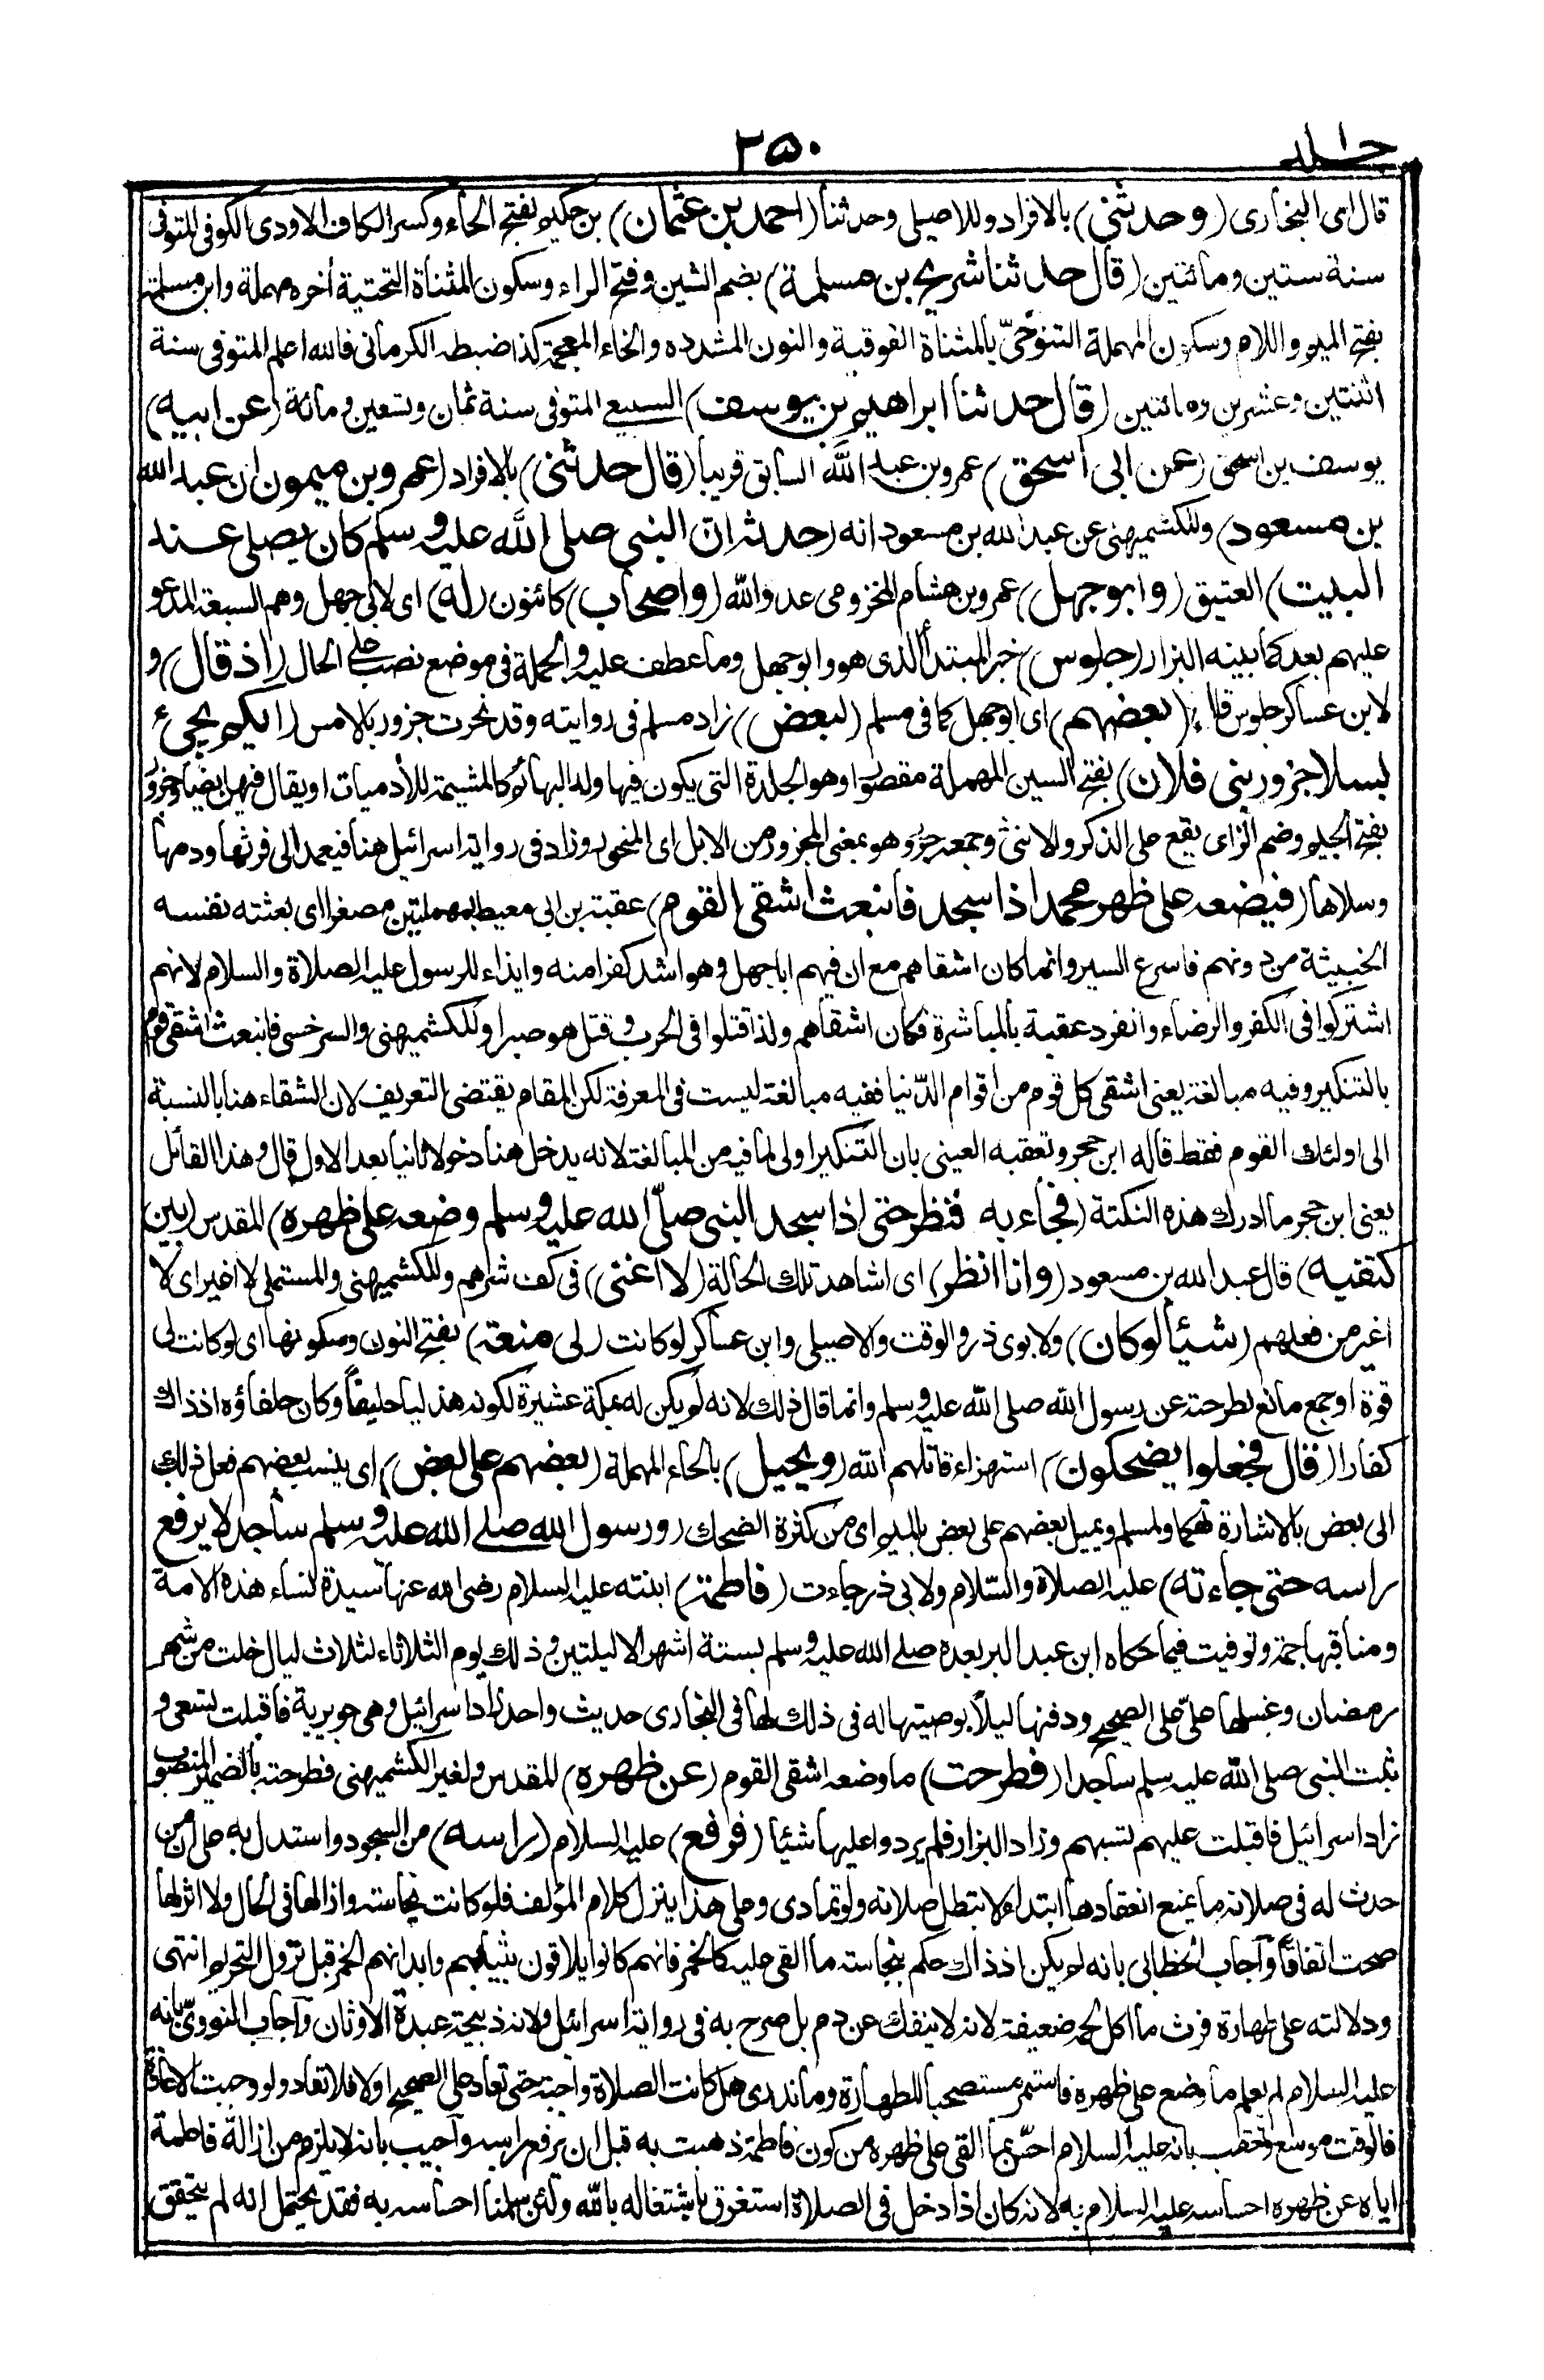 جلد ۱
۲۵۰
قال اى البخارى (وحدثنى) بالافراد وللاصيلى وحدثنا (احمد بن عثمان) بن حكيم بفتح الحاء وكسر الكاف الاودى الكوفى المتوفى
سنة ستين ومائتين (قال حدثنا شريح بن مسلمة) بضم الشين وفتح الراء وسكون المثناة التحتية أخره مهملة وابن مسلمة
بفتح الميم واللام وسكون المهملة التنوخىّ بالمثناة الفوقية والنون المشدده والخاء المعجمة كذا ضبطه الكرمانى فالله اعلم المتوفى سنة
اثنتين وعشرين ومائتين (قال حدثنا ابراهيم بن يوسف) السبيعى المتوفى سنة ثمان وتسعين ومائة (عن ابيه)
يوسف بن اسحق (عن ابى اسحق) عمرو بن عبد الله السابق قريبا (قال حدثنى) بالافراد (عمرو بن ميمون ان عبد الله
بن مسعود) وللكشميهنى عن عبد الله بن مسعود انه (حدثه ان النبى صلى الله عليه وسلم كان يصلى عند
البيت) العتيق (وابو جهل) عمرو بن هشام المخزومى عدو الله (واصحاب) كائنون (له) اى لابى جهل وهم السبعة المدعو
عليهم بعد كما بينه البزار (جلوس) خبر المبتدأ الذى هو وابو جهل وما عطف عليه والجملة فى موضع نصب على الحال (اذ قال) و
لابن عساكر جلوس قال (بعضهم) اى ابو جهل كما فى مسلم (لبعض) زاد مسلم فى روايته وقد نحرت جزور بالامس (ايكم يجىء
بسلا جزور بنى فلان) بفتح السين المهملة مقصورا وهو الجلدة التى يكون فيها ولد البهائم كالمشيمة للأدميات او يقال فيهن ايضا وجزور
بفتح الجيم وضم الزاى يقع على الذكر والانثى وجمعه جزر وهو بمعنى المجزور من الابل اى المنحور وزاد فى رواية اسرائيل هنا فيعمد الى فرثها ودمها
وسلاها (فيضعه على ظهر محمد اذا سجد فانبعث اشقى القوم) عقبة بن ابى معيط بمهملتين مصغرا اى بعثته نفسه
الخبيثة من دونهم فاسرع السير وانما كان اشقاهم مع ان فيهم اباجهل وهو اشد كفرا منه وايذاء للرسول عليه الصلاة والسلام لانهم
اشتركوا فى الكفر والرضاء وانفرد عقبة بالمباشرة فكان اشقاهم ولذا قتلوا فى الحرب وقتل هو صبرا وللكشميهنى والسرخسى فانبعث اشقى قوم
بالتنكير وفيه مبالغة يعنى اشقى كل قوم من اقوام الدّنيا ففيه مبالغة ليست فى المعرفة لكن المقام يقتضى التعريف لان الشقاء هنا بالنسبة
الى اولئك القوم فقط قاله ابن حجر وتعقبه العينى بان التنكير اولى لما فيه من المبالغة لانه يدخل هنا دخولا ثانيا بعد الاول قال وهذا القائل
يعنى ابن حجر ما ادرك هذه النكتة (فجاء به فنظر حتى اذا سجد النبى صلّى الله عليه وسلم وضعه على ظهره) المقدس (بين
كتفيه) قال عبد الله بن مسعود (وانا انظر) اى اشاهد تلك الحالة (لا اغنى) فى كف شرهم وللكشميهنى والمستملى لا اغير اى لا
اغير من فعلهم (شيئا لو كان) ولابوى ذر والوقت والاصيلى وابن عساكر لو كانت (لى منعة) بفتح النون وسكونها اى لو كانت لى
قوة او جمع مانع لطرحته عن رسول الله صلى الله عليه وسلم وانما قال ذلك لانه لم يكن له بمكة عشيرة لكونه هذليا حليفاً وكان حلفاؤه اذ ذاك
كفارا (قال فجعلوا يضحكون) استهزاء قاتلهم الله (ويحيل) بالحاء المهملة (بعضهم على بعض) اى ينسب بعضهم فعل ذلك
الى بعض بالاشارة تهكما ولمسلم ويميل بعضهم على بعض بالميم اى من كثرة الضحك (ورسول الله صلى الله عليه وسلم ساجد لا يرفع
راسه حتى جاءته) عليه الصلاة والسّلام ولابى ذر جاءت (فاطمة) ابنته عليه السلام رضى الله عنها سيدة نساء هذه الامة
ومناقبها جمة وتوفيت فيما حكاه ابن عبد البر بعده صلى الله عليه وسلم بستة اشهر الا ليلتين وذلك يوم الثلاثاء لثلاث ليال خلت من شهر
رمضان وغسلها علىّ على الصحيح ودفنها ليلاً بوصيتها له فى ذلك لها فى البخارى حديث واحد زاد اسرائيل وهى جويرية فاقبلت تسعى و
ثبت النبى صلى الله عليه وسلم ساجدا (فطرحت) ما وضعه اشقى القوم (عن ظهره) المقدس ولغير الكشميهنى فطرحته بالضمير المنصوب
زاد اسرائيل فاقبلت عليهم تسبهم وزاد البزار فلم يردوا عليها شيئا (فرفع) عليه السلام (راسه) من السجود واستدل به على ان من
حدث له فى صلاته ما يمنع انعقادها ابتداء لا تبطل صلاته ولو تمادى وعلى هذا ينزل كلام المؤلف فلو كانت نجاسة وازالها فى الحال ولا اثر لها
صحت اتفاقاً وأجاب الخطابى بانه لم يكن اذ ذاك حكم بنجاسة ما القى عليه كالخمر فانهم كانوا يلاقون بثيابهم وابدانهم الخمر قبل نزول التحريم انتهى
ودلالته على طهارة فرث ما اكل لحمه ضعيفة لانه لا ينفك عن دم بل صرح به فى رواية اسرائيل ولانه ذبيحة عبدة الاوثان وأجاب النووىّ بانه
عليه السلام لم يعلم ما وضع على ظهره فاستمر مستصحبا للطهارة وما ندرى هل كانت الصلاة واجبة حتى تعاد على الصحيح او لا فلا تعاد ولو وجبت الاعادة
فالوقت موسع وتعقب بانه عليه السلام احسّ بما القى على ظهره من كون فاطمة ذهبت به قبل ان يرفع راسه وأجيب بانه لا يلزم من ازالة فاطمة
اياه عن ظهره احساسه عليه السلام به لانه كان اذا دخل فى الصلاة استغرق باشتغاله بالله ولئن سلمنا احساسه به فقد يحتمل انه لم يتحقق